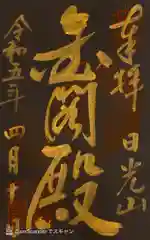 奉拝 日光山
金閣殿
令和五年 四月十
CamScanner でスキャン